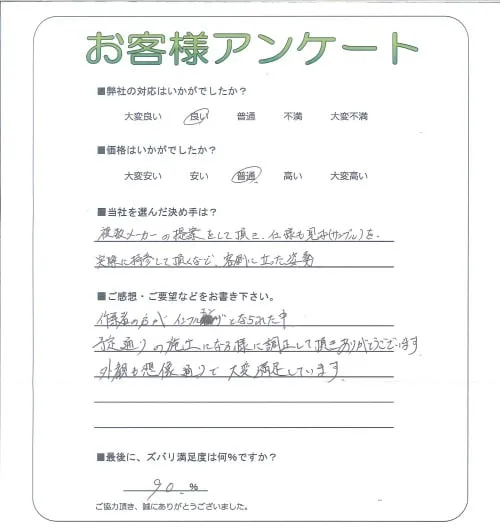 お客様アンケート
■弊社の対応はいかがでしたか？
大変良い 良い 普通 不満 大変不満
■価格はいかがでしたか？
大変安い 安い 普通 高い 大変高い
■当社を選んだ決め手は？
複数メーカーの提案をして頂き、仕様も見本(サンプル)を、
実際に持参して頂くなど、客側に立った姿勢
■ご感想・ご要望などをお書き下さい。
作業者の方が インフル となられた中
予定通りの施工になる様に調正して頂きありがとうございます
外観も想像通りで 大変満足しています。
■最後に、ズバリ満足度は何%ですか？
90 %
ご協力頂き、誠にありがとうございました。